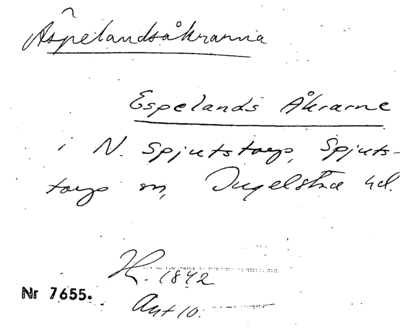 Äspelandsåkrarna
Espelands Åkrarne
i N. Spjutstorp, Spjuts-
torps sn, Ingelstad hd.
H. 1842
Akt 10.
Nr 7655.